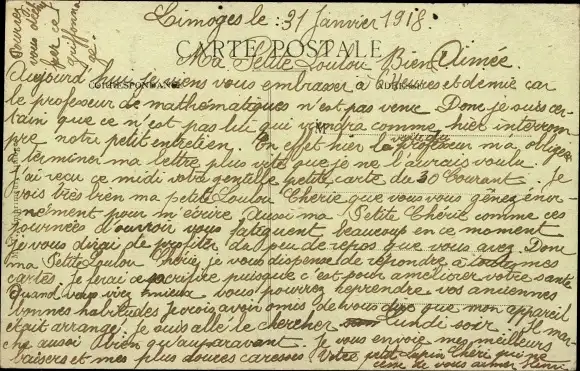 Limoges le : 31 Janvier 1918.
CARTE POSTALE
Ma Petite Loulou Bien Aimée.
Aujourd'hui je viens vous embrasser à heures et demie car
CORRESPONDANCE
le professeur de mathématiques n'est pas venu. Donc je suis cer-
tain que ce n'est pas lui qui viendra comme hier interrom-
pre notre petit entretien. En effet hier le professeur m'a obligé
à terminer ma lettre plus vite que je ne l'aurais voulu.
J'ai reçu ce midi votre gentille petite carte du 30 Courant. Je
vois très bien ma petite Loulou Chérie que vous vous gênez énor-
mément pour m'écrire. Aussi ma Petite Chérie comme ces
journées d'ouvroir vous fatiguent beaucoup en ce moment
je vous dirai de profiter du peu de repos que vous avez. Donc
ma Petite Loulou Chérie je vous dispense de répondre à mes
cartes je ferai ce sacrifice puisque c'est pour améliorer votre santé
Quand vous irez mieux vous pourrez reprendre vos anciennes
bonnes habitudes. Je crois avoir omis de vous dire que mon appareil
était arrangé. je suis allé le chercher lundi soir. Il mar-
che aussi bien qu'auparavant. Je vous envoie mes meilleurs
baisers et mes plus douces caresses Votre petit Lapin Chéri qui ne
cesse de vous aimer Henri
Pourrez
vous
par ce
griffonna
ge